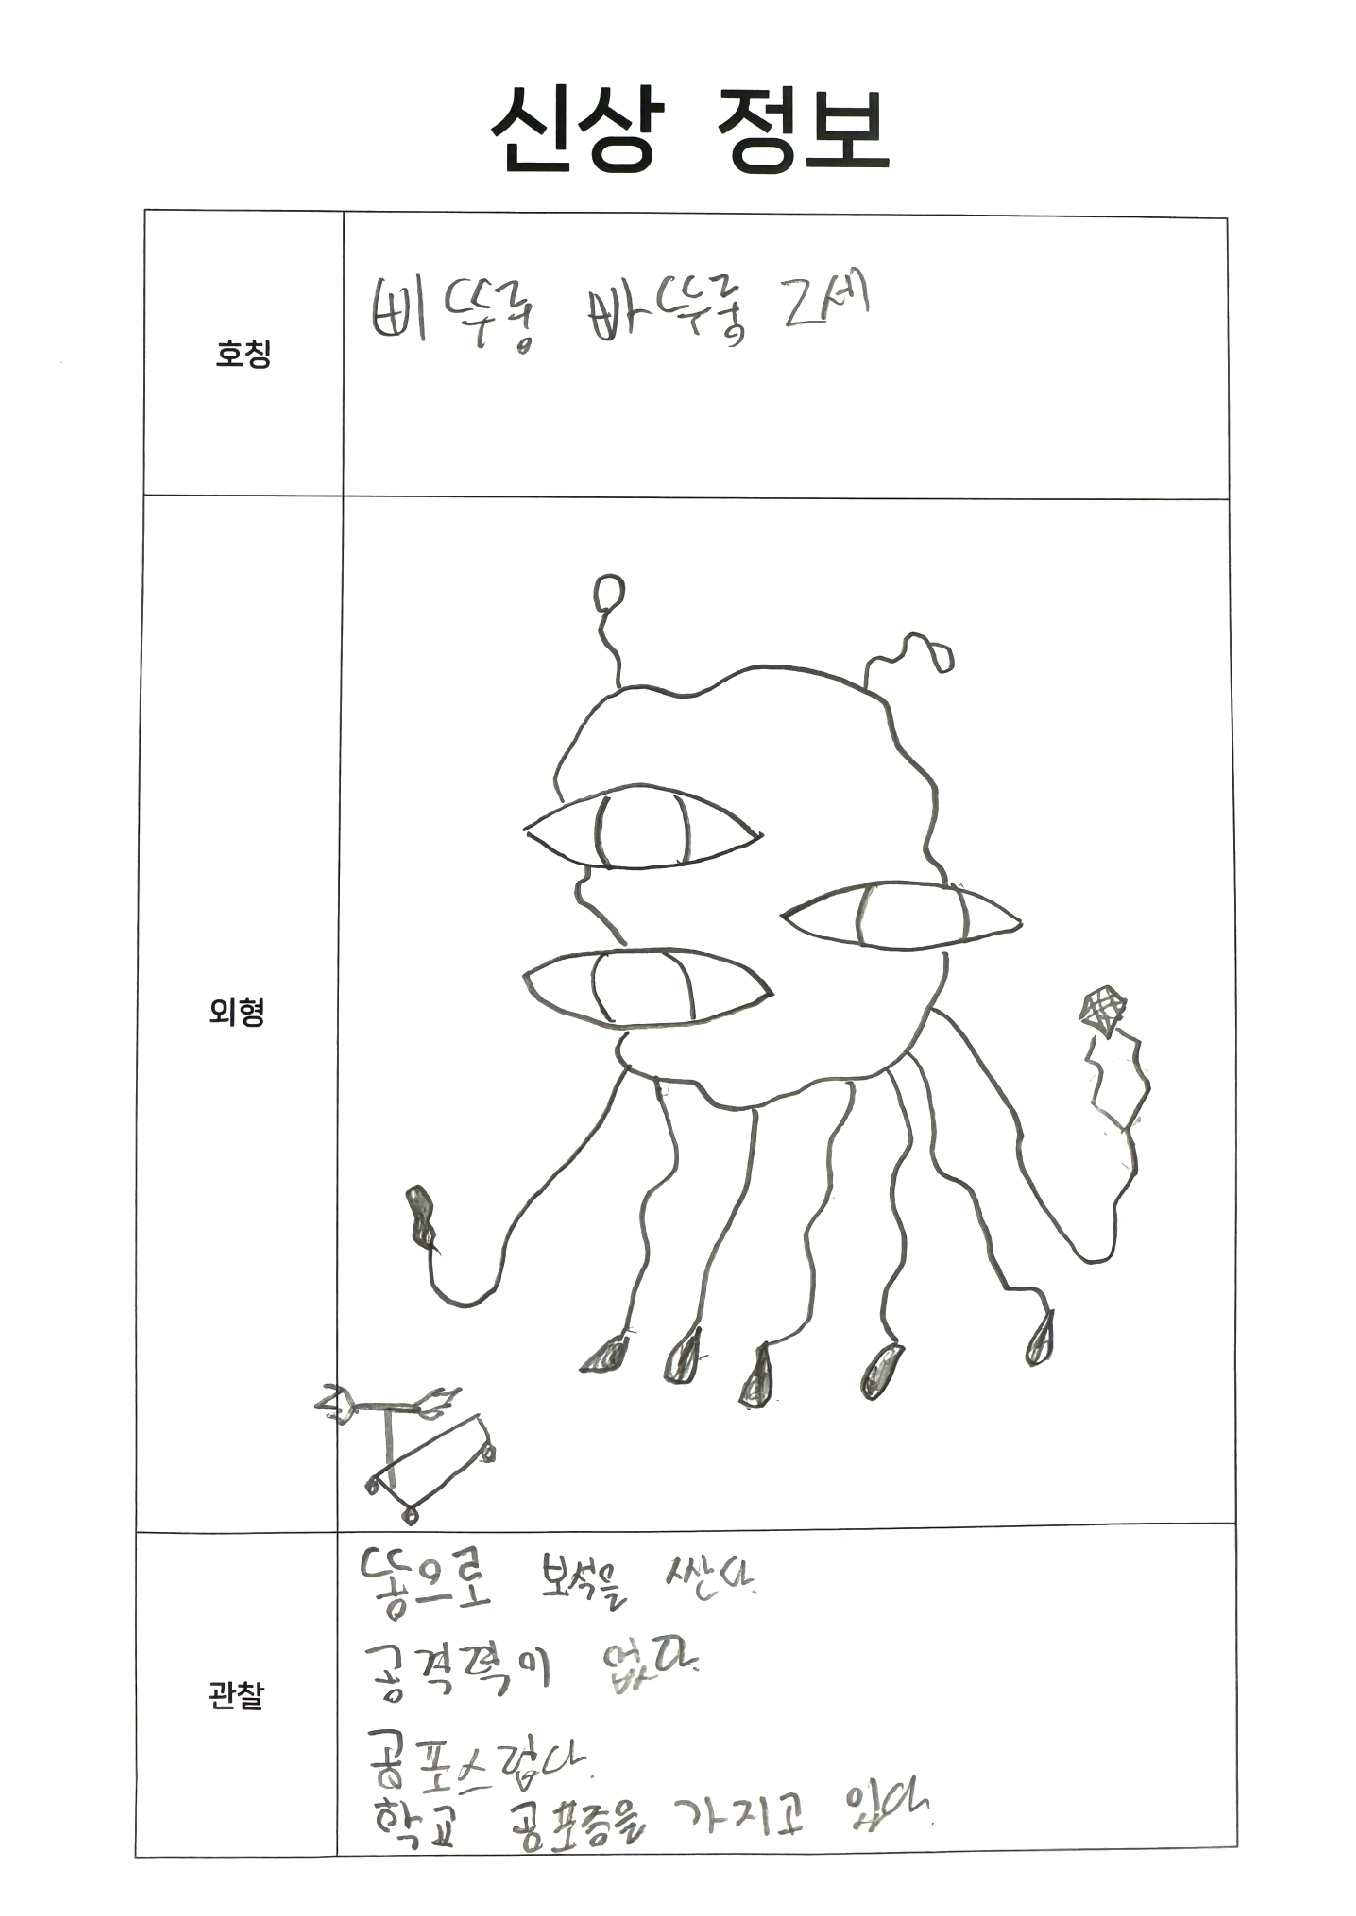 신상 정보
호칭
삐뚜룽 빠뚜룽 2세
외형
관찰
똥으로 보석을 싼다.
공격력이 없다.
공포스럽다.
학교 공포증을 가지고 있다.